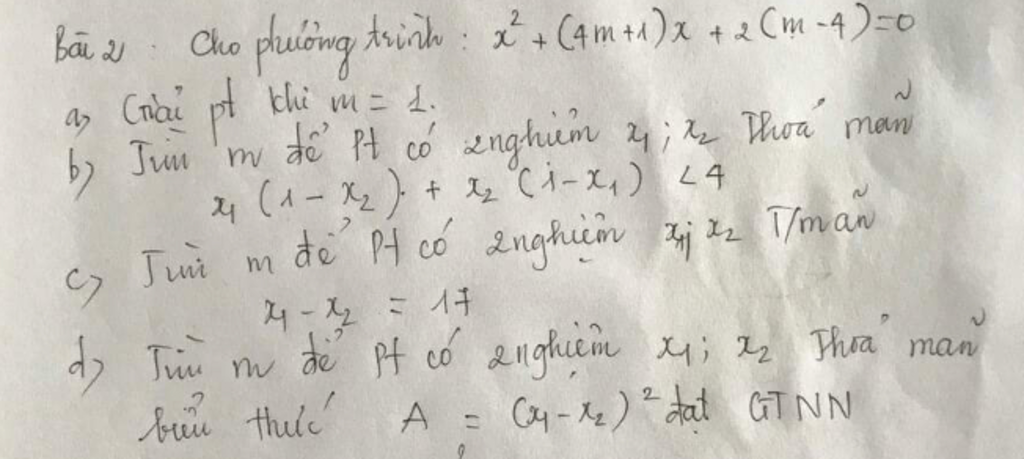 Bài 2 : Cho phương trình : x² + (4m+1)x + 2(m-4)=0
a) Giải pt khi m = 1.
b) Tìm m để Pt có 2 nghiệm x₁ ; x₂ Thoả mãn
x₁ (1 - x₂) + x₂ (1 - x₁) < 4
c) Tìm m để Pt có 2 nghiệm x₁; x₂ T/mãn
x₁ - x₂ = 17
d) Tìm m để Pt có 2 nghiệm x₁ ; x₂ Thoả mãn
biểu thức A = (x₁ - x₂)² đạt GTNN